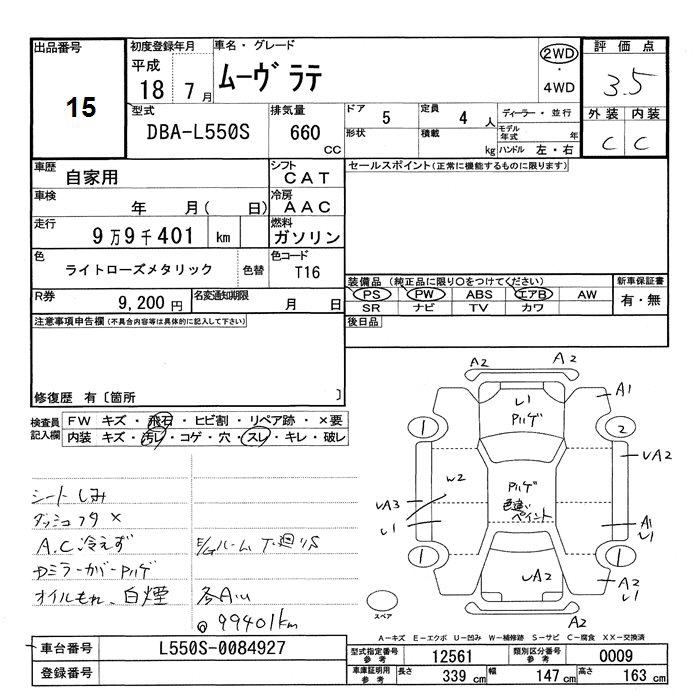 出品番号
15
初度登録年月
平成
18 7月
車名・グレード
ムーヴ ラテ
2WD
・
4WD
評価点
3.5
外装 内装
C C
型式
DBA-L550S
排気量
660
CC
ドア 5
定員 4 人
形状
積載 kg
ディーラー・並行
モデル年式 年
ハンドル 左・右
車歴
自家用
シフト
CAT
車検
年 月( 日)
冷房
AAC
走行
9万9千401 km
燃料
ガソリン
色
ライトローズメタリック
色替
色コード
T16
R券
9,200円
名変通知期限
月 日
セールスポイント(正常に機能するものに限ります)
装備品 (純正品に限り○をつけてください)
PS PW ABS エアB AW
SR ナビ TV カワ
新車保証書
有・無
後日品
注意事項申告欄(不具合内容等は具体的に記入して下さい)
修復歴 有〔箇所 〕
検査員
記入欄
FW キズ・飛石・ヒビ割・リペア跡・×要
内装 キズ・汚レ・コゲ・穴・スレ・キレ・破レ
シートしみ
ダッシュフタ ×
A.C冷えず
E/Gルーム下廻りS
ドミラーカバーPハゲ
オイルもれ、白煙
各A.u
@99401km
A2 A2
U1
Pハゲ
A1
1
2
UA2
W2
UA3
U1
Pハゲ
色違い
ペイント
A1
U1
1
1
UA2
A2
U1
A2
スペア
A-キズ E-エクボ U-凹み W-補修跡 S-サビ C-腐食 XX-交換済
車台番号
L550S-0084927
登録番号
型式指定番号
参考
12561
類別区分番号
参考
0009
車庫証明用
参考
長さ 339 cm
幅 147 cm
高さ 163 cm